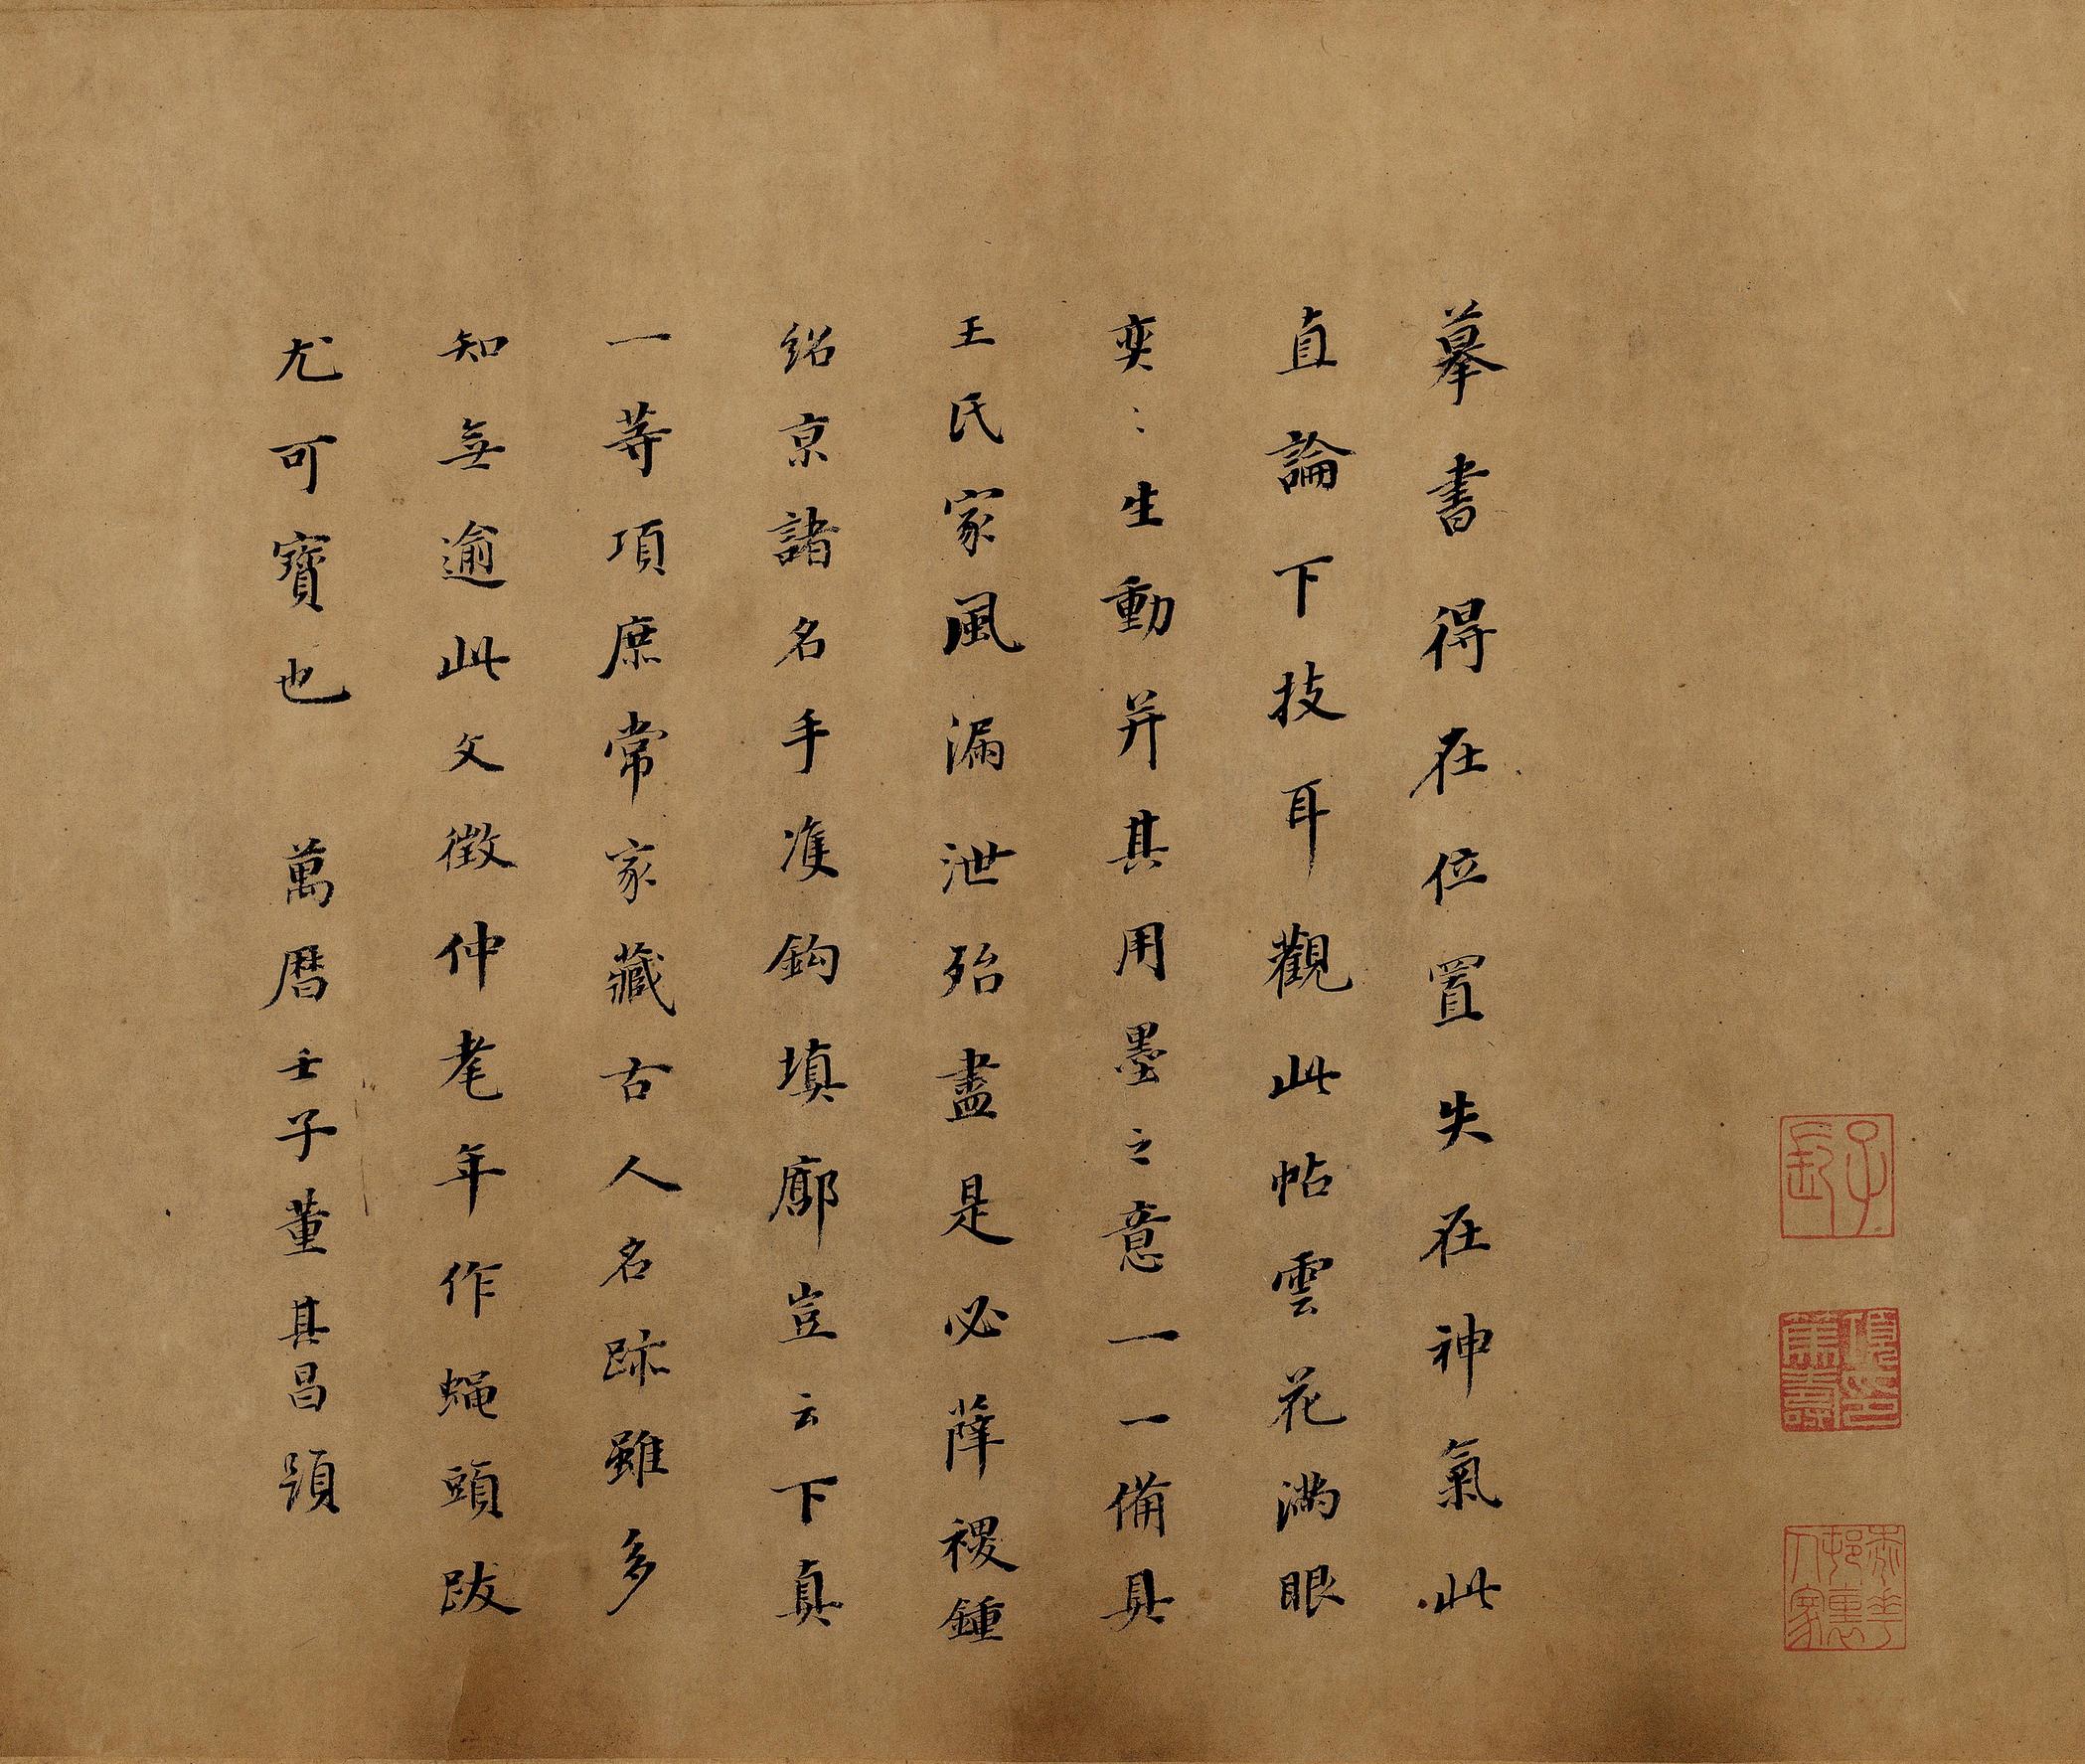 摹書得在位置失在神氣此
直論下技耳觀此帖雲花滿眼
奕〻生動并其用墨之意一一備具
王氏家風漏泄殆盡是必薛稷鍾
紹京諸名手雙鈎填廓豈云下真
一等項庶常家藏古人名跡雖多
知無逾此文徵仲耄年作蝇頭跋
尤可寶也 萬曆壬子董其昌題
子長
項篤壽印
桃花邨裏人家